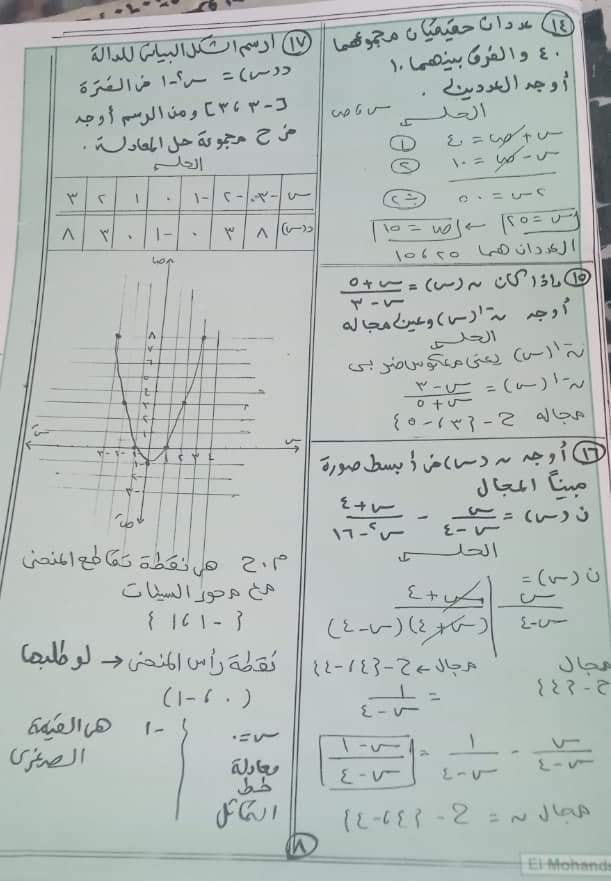 ١٤ عددان حقيقيان مجموعهما
٤٠ والفرق بينهما ١٠
أوجد العددين .
الحل س ، ص
س + ص = ٤٠ ①
س - ص = ١٠ ②
٢س = ٥٠ ÷٢
س = ٢٥ ← ص = ١٥
العددان هما ٢٥ ، ١٥
١٥ إذا كان ن(س) = س + ٥ / س - ٣
أوجد ن⁻¹(س) وعين مجاله
الحل
ن⁻¹(س) يعني معكوس ضربي
ن⁻¹(س) = س - ٣ / س + ٥
مجاله ح - {٣ ، -٥}
١٦ أوجد ن(س) في أبسط صورة
مبيناً المجال
ن(س) = س / س - ٤ - س + ٤ / س² - ١٦
الحل
ن(س) =
س / س - ٤ | س + ٤ / (س + ٤)(س - ٤)
مجال ح - {٤} مجال ← ح - {٤ ، -٤}
= ١ / س - ٤
س / س - ٤ - ١ / س - ٤ = س - ١ / س - ٤
مجال ن = ح - {٤ ، -٤}
١٧ ارسم الشكل البياني للدالة
د(س) = س² - ١ في الفترة
[-٣ ، ٣] ومن الرسم أوجد
في ح مجموعة حل المعادلة .
الحل
س -٣ -٢ -١ ٠ ١ ٢ ٣
د(س) ٨ ٣ ٠ -١ ٠ ٣ ٨
ص
٨
٧
٦
٥
٤
٣
٢
١
س -٣ -٢ -١ ١ ٢ ٣ ٤ س
-١
-٢
-٣
ص
م.ح هي نقطة تقاطع المنحنى
مع محور السينات
{-١ ، ١}
نقطة رأس المنحنى ← أو طلبها
(٠ ، -١)
س = ٠
معادلة
خط
التماثل
-١ هي القيمة
الصغرى
٨
El Mohand